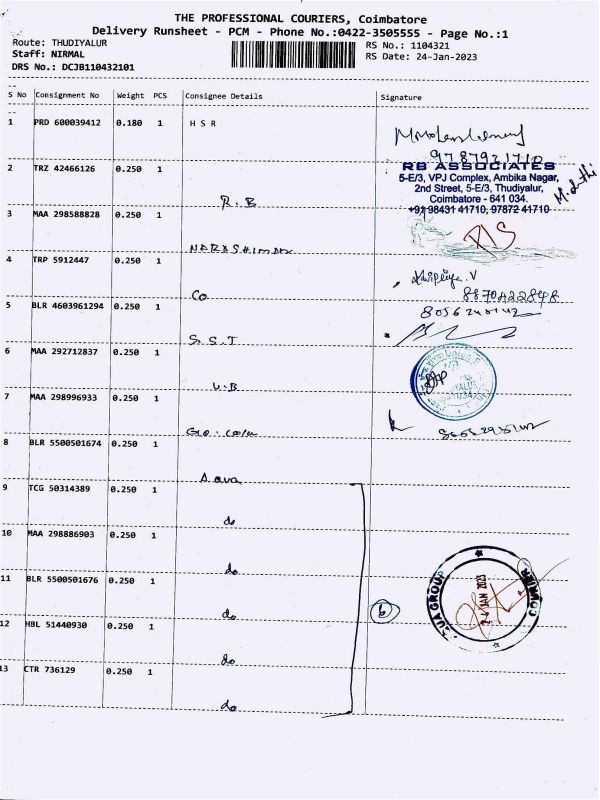 THE PROFESSIONAL COURIERS, Coimbatore
Delivery Runsheet - PCM - Phone No.:0422-3505555 - Page No.:1
Route: THUDIYALUR
RS No.: 1104321
Staff: NIRMAL
RS Date: 24-Jan-2023
DRS No.: DCJB110432101
S No Consignment No Weight PCS Consignee Details Signature
1 PRD 600039412 0.180 1 H S R
9787921710
2 TRZ 42466126 0.250 1 R.B
RS ASSOCIATES
5-E/3, VPJ Complex, Ambika Nagar,
2nd Street, 5-E/3, Thudiyalur,
Coimbatore - 641 034.
+91 98431 41710, 97872 41710
3 MAA 298588828 0.250 1
4 TRP 5912447 0.250 1 Co
8870422898
5 BLR 4603961294 0.250 1 S.S.T
6 MAA 292712837 0.250 1 U.B
7 MAA 298996933 0.250 1
8 BLR 5500501674 0.250 1
9 TCG 50314389 0.250 1 do
10 MAA 298886903 0.250 1 do
11 BLR 5500501676 0.250 1 do
6
12 HBL 51440930 0.250 1 do
13 CTR 736129 0.250 1 do
GROUP
24 JAN 2023